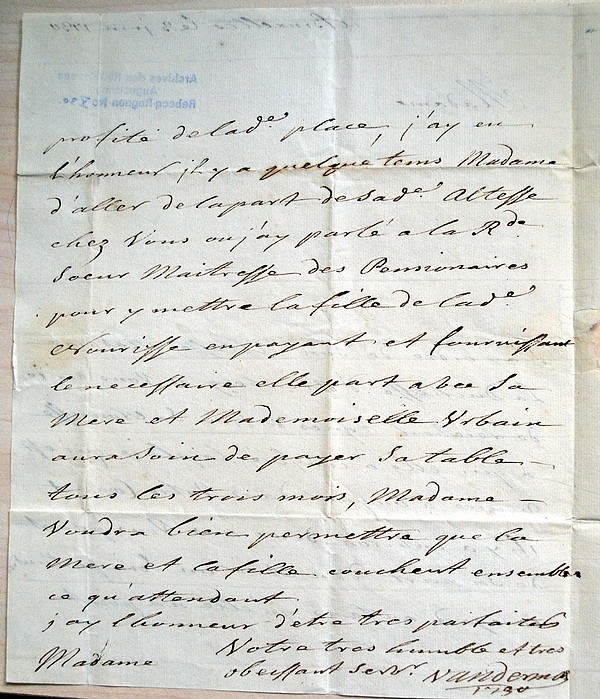 profité de lad.e place, j'ay eu
l'honneur il y a quelque tems Madame
d'aller de la part de sad.e Altesse
chez Vous ou j'ay parlé a la R.de
Soeur Maitresse des Pensionaires
pour y mettre la fille de lad.e
Nourisse en payant et fournissant
le necessaire elle part avec sa
Mere et Mademoiselle Urbain
aura soin de payer sa table –
tous les trois mois, Madame –
Voudra bien permettre que la
Mere et la fille couchent ensemble
ce qu'attendant
j'ay l'honneur d'être tres parfaitemt
Madame
Votre tres humble et tres
obeissant serv.r
Bruxelles le 2 juin 1790
Madame
Archives des Religieuses
Augustines
Rebecq-Rognon No